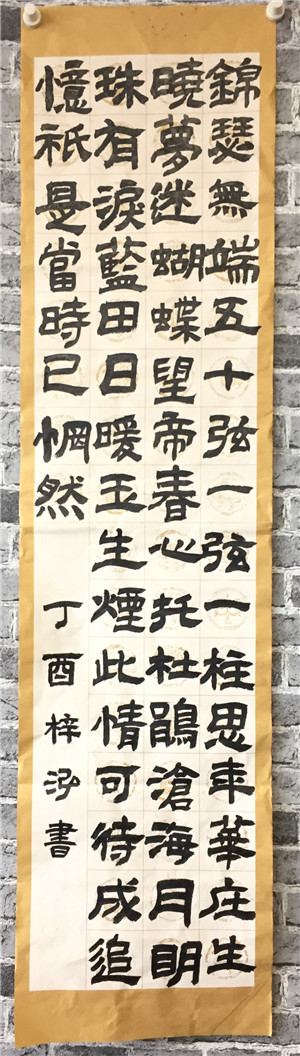 錦瑟無端五十弦一弦一柱思年華庄生
曉夢迷蝴蝶望帝春心托杜鵑滄海月明
珠有淚藍田日暖玉生煙此情可待成追
憶祇是當時已惘然 丁酉梓泓書